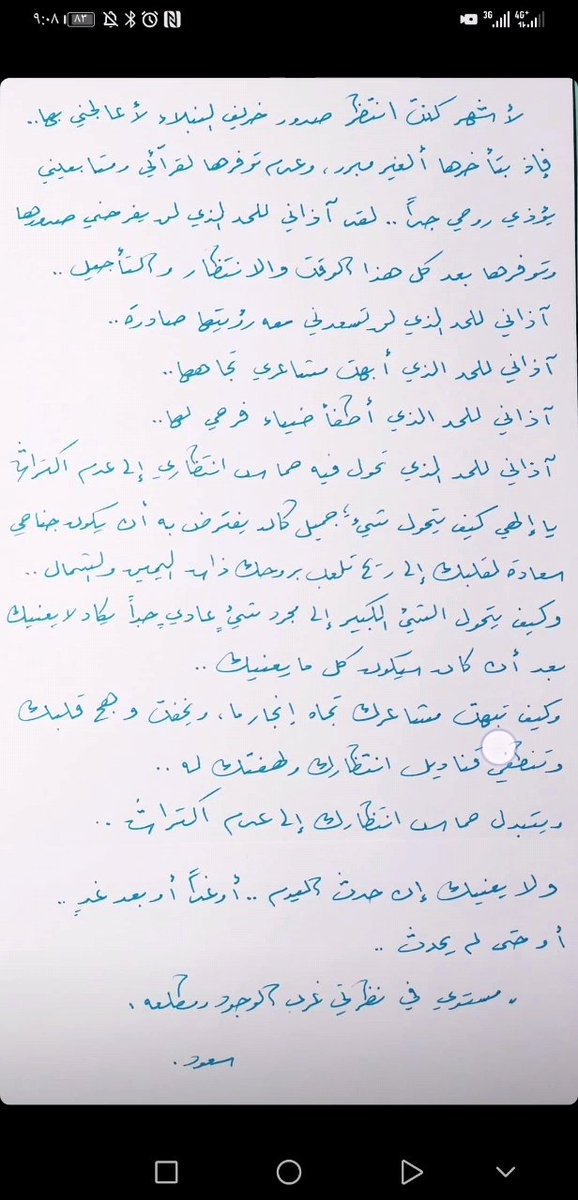 ٩:٠٨ ٨٣ 3G 4G+
لأشهر كنت انتظر صدور خريف النبلاء لأعالجني بها..
فإذ بتأخرها ألغير مبرر، وعدم توفرها لقرآئي ومتابعيني
يؤذي روحي جداً .. لقد آذاني للحد الذي لن يفرحني صدورها
وتوفرها بعد كل هذا الوقت والانتظار والتأجيل ..
آذاني للحد الذي لن تسعدني معه رؤيتها صادرة ..
آذاني للحد الذي أبهت مشاعري تجاهها..
آذاني للحد الذي أطفأ ضياء فرحي لها..
آذاني للحد الذي تحول فيه حماس انتظاري إلى عدم اكتراث
يا إلهي كيف يتحول شيءٌ جميل كان يفترض به أن يكون جناحي
سعادة لقلبك إلى ريح تلعب بروحك ذات اليمين والشمال ..
وكيف يتحول الشيئ الكبير إلى مجرد شيئٍ عاديٍ جداً يكاد لا يعنيك
بعد أن كان سيكون كل ما يعنيك ..
وكيف تبهت مشاعرك تجاه إنجاز ما، ويخفت وهج قلبك
وتنطفي قناديل انتظارك ولهفتك له ..
ويتبدل حماس انتظارك إلى عدم اكتراث ..
ولا يعنيك إن حدث اليوم .. أو غداً أو بعد غدٍ ..
أو حتى لم يحدث ..
، مستوي في نظرتي غرب الوجود ومطلعه ،
سعود.